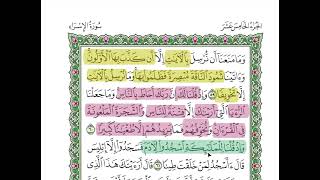 الجزء الخامس عشر
سورة الإسراء
وَمَا مَنَعَنَا أَن نُّرْسِلَ بِالْآيَاتِ إِلَّا أَن كَذَّبَ بِهَا الْأَوَّلُونَ
وَءَاتَيْنَا ثَمُودَ النَّاقَةَ مُبْصِرَةً فَظَلَمُوا بِهَا وَمَا نُرْسِلُ بِالْآيَاتِ
إِلَّا تَخْوِيفًا ٥٩ وَإِذْ قُلْنَا لَكَ إِنَّ رَبَّكَ أَحَاطَ بِالنَّاسِ وَمَا جَعَلْنَا
الرُّءْيَا الَّتِي أَرَيْنَاكَ إِلَّا فِتْنَةً لِّلنَّاسِ وَالشَّجَرَةَ الْمَلْعُونَةَ
فِي الْقُرْءَانِ وَنُخَوِّفُهُمْ فَمَا يَزِيدُهُمْ إِلَّا طُغْيَانًا كَبِيرًا ٦٠
وَإِذْ قُلْنَا لِلْمَلَائِكَةِ اسْجُدُوا لِآدَمَ فَسَجَدُوا إِلَّا إِبْلِيسَ
قَالَ ءَأَسْجُدُ لِمَنْ خَلَقْتَ طِينًا ٦١ قَالَ أَرَءَيْتَكَ هَٰذَا الَّذِي